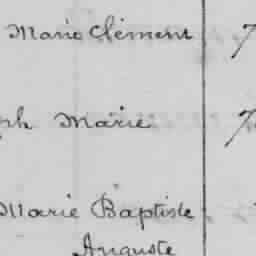 Marie Clément 7
ph Marie 7
Marie Baptiste
Auguste